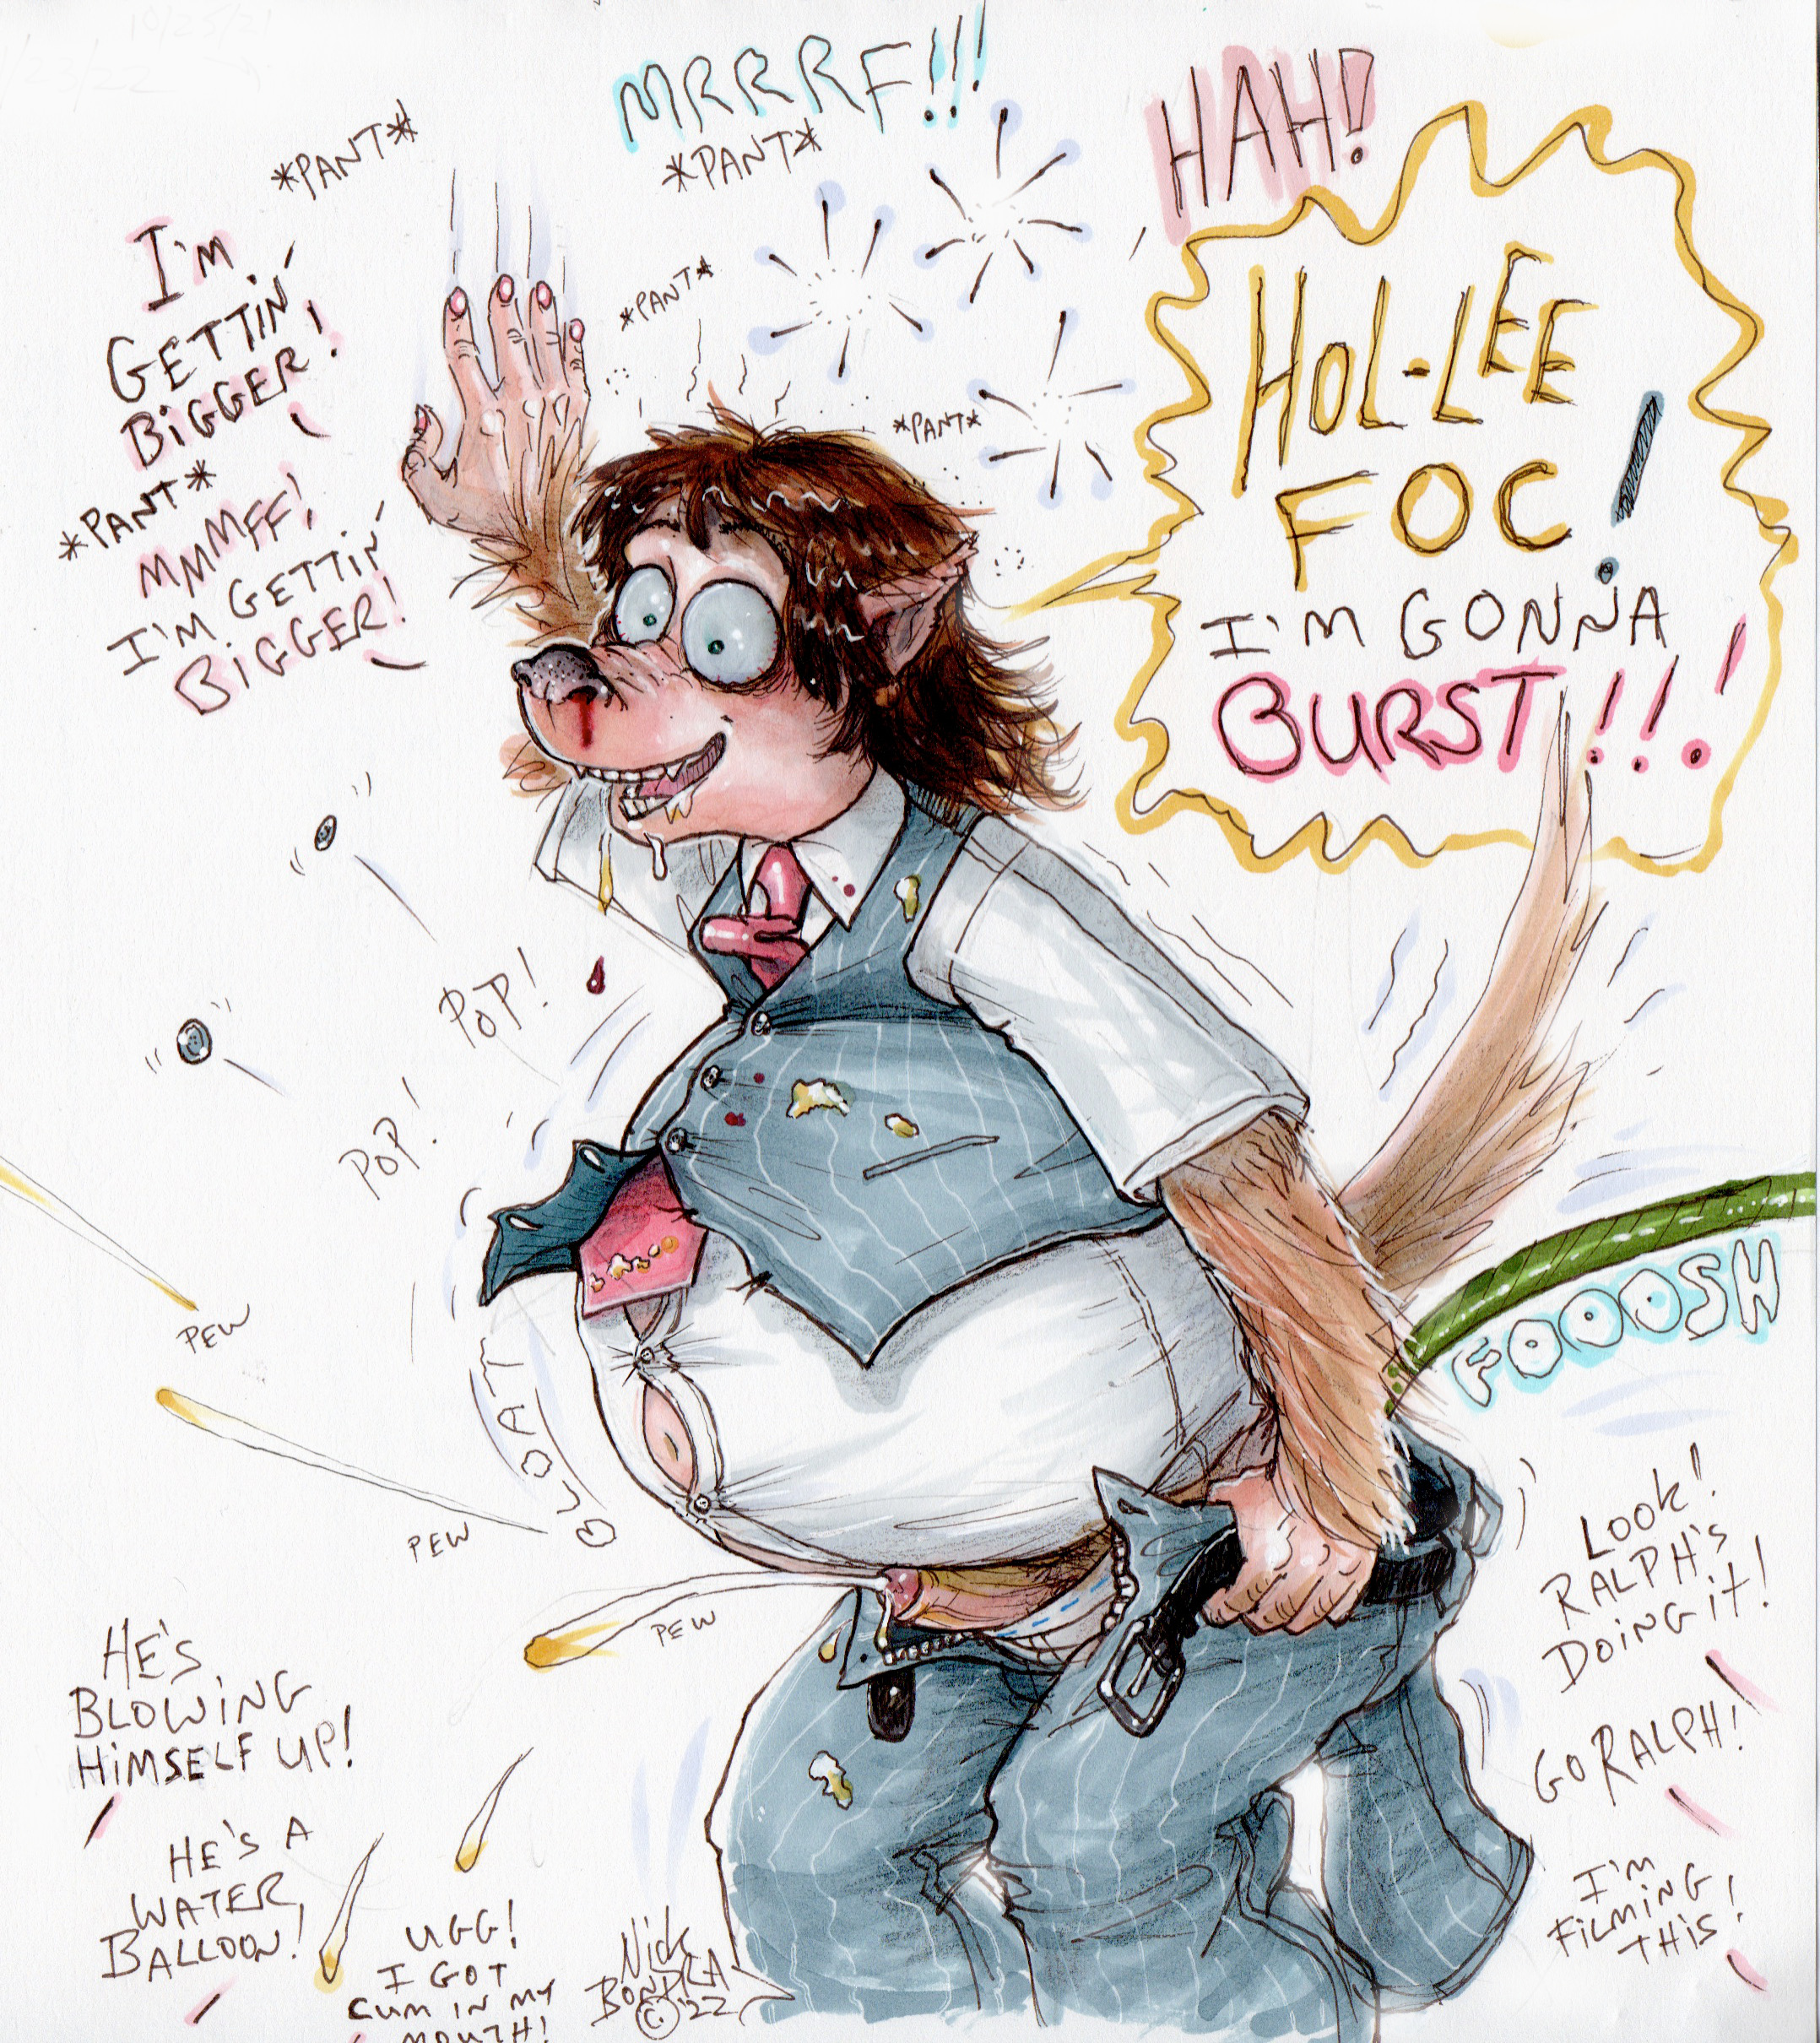 *PANT*
MRRRF!!!
*PANT*
HAH!
I'M
GETTIN'
BIGGER!
*PANT*
MMMFF!
I'M GETTIN'
BIGGER!
*PANT*
*PANT*
HOL-LEE
FOC!
I'M GONNA
BURST!!!
POP!
POP!
PEW
PEW
PEW
BLOATT
FOOOSH
LOOK!
RALPH'S
DOING IT!
GO RALPH!
I'M
FILMING
THIS!
HE'S
BLOWING
HIMSELF UP!
HE'S A
WATER
BALLOON!
UGG!
I GOT
CUM IN MY
MOUTH!
NICK
© '22